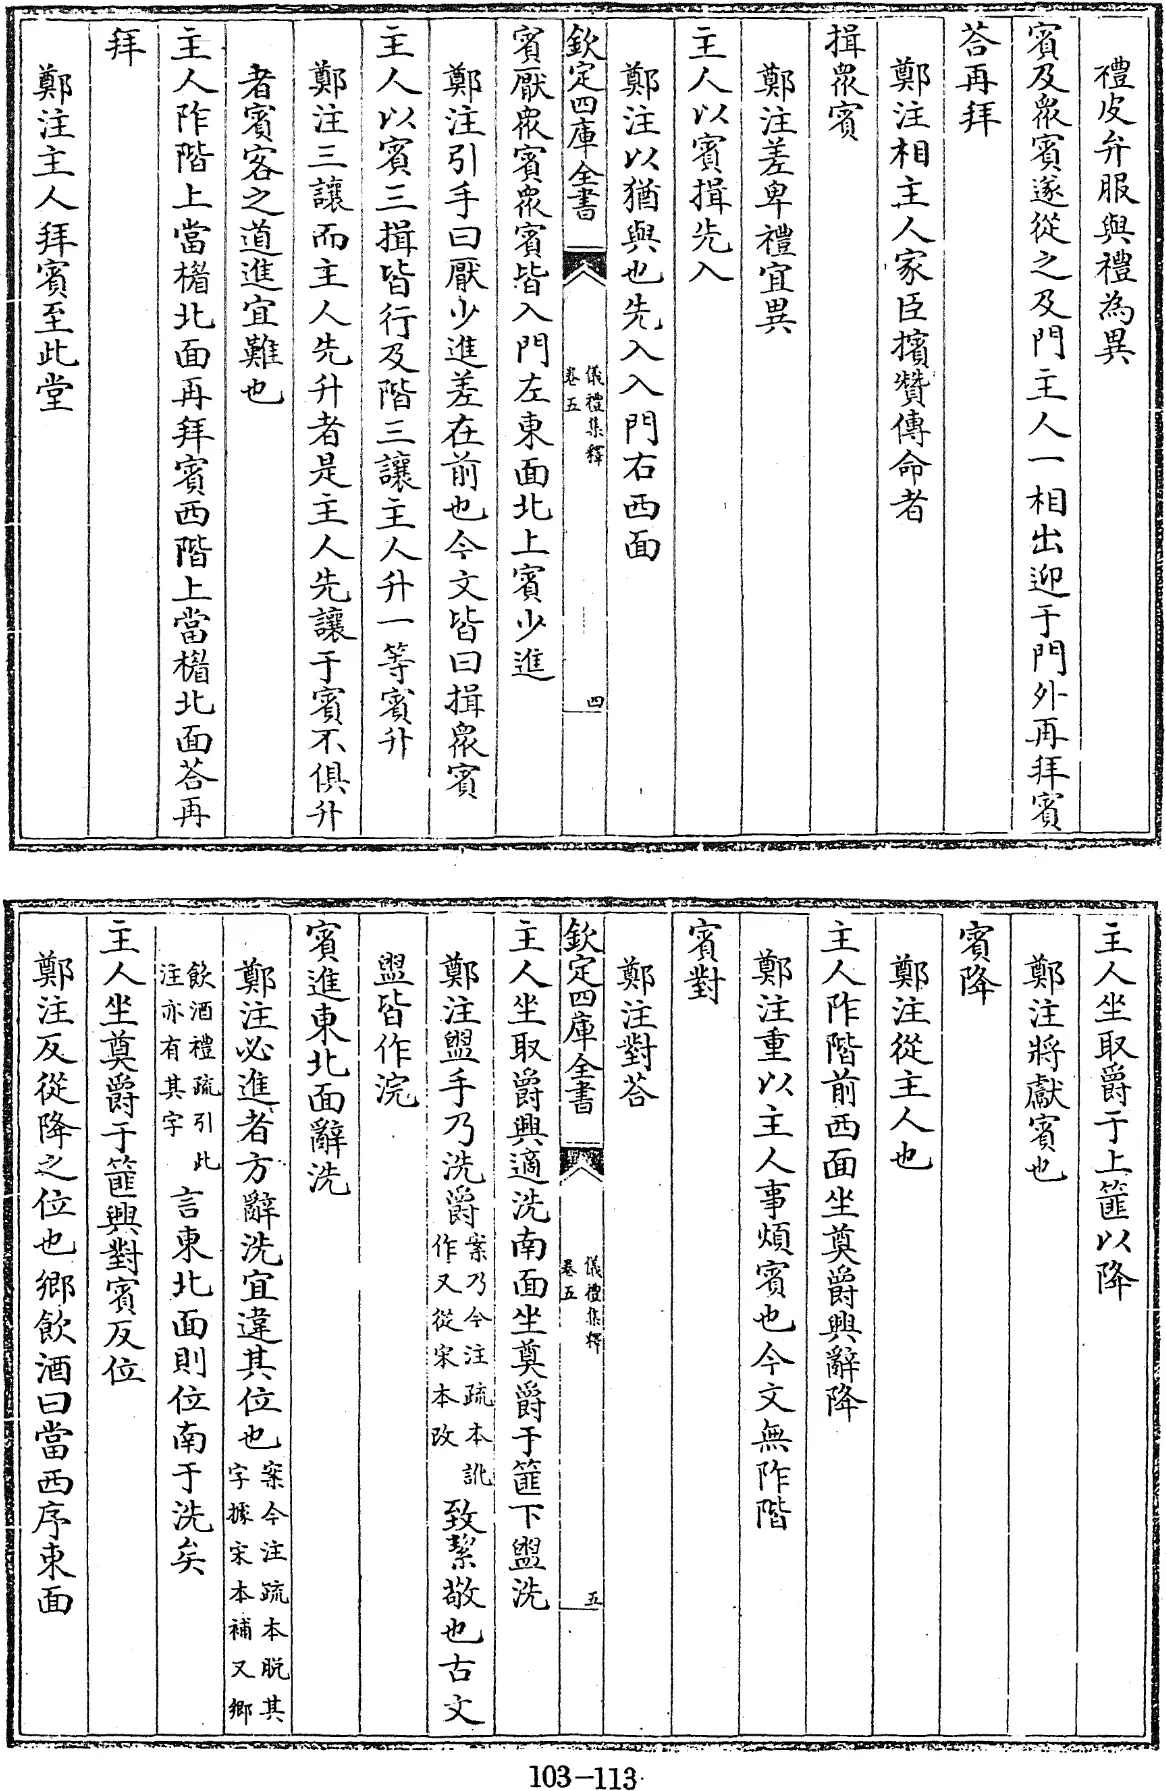 禮皮弁服與禮為異
賓及衆賓遂從之及門主人一相出迎于門外再拜賓
荅再拜
鄭注相主人家臣擯贊傳命者
揖衆賓
鄭注差卑禮宜異
主人以賓揖先入
鄭注以猶與也先入入門右西面
欽定四庫全書
儀禮集釋
卷五
四
賓厭衆賓衆賓皆入門左東面北上賓少進
鄭注引手曰厭少進差在前也今文皆曰揖衆賓
主人以賓三揖皆行及階三讓主人升一等賓升
鄭注三讓而主人先升者是主人先讓于賓不俱升
者賓客之道進宜難也
主人阼階上當楣北面再拜賓西階上當楣北面荅再
拜
鄭注主人拜賓至此堂
主人坐取爵于上篚以降
鄭注將獻賓也
賓降
鄭注從主人也
主人阼階前西面坐奠爵興辭降
鄭注重以主人事煩賓也今文無阼階
賓對
鄭注對荅
欽定四庫全書
儀禮集釋
卷五
五
主人坐取爵興適洗南面坐奠爵于篚下盥洗
鄭注盥手乃洗爵案乃今注疏本訛作又從宋本改致絜敬也古文
盥皆作浣
賓進東北面辭洗
鄭注必進者方辭洗宜違其位也案今注疏本脱其字據宋本補又鄉
飲酒禮疏引此注亦有其字言東北面則位南于洗矣
主人坐奠爵于篚興對賓反位
鄭注反從降之位也鄉飲酒曰當西序東面
103-113